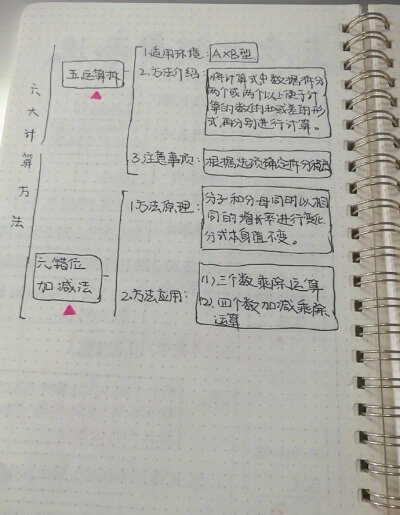 六大计算方法
五运算拆
1.适用环境：A×B型
2.方法介绍：将计算式中数据拆分
两个或两个以上便于计
算的数的和或差的形
式,再分别进行计算。
3.注意事项：根据选项确定拆分
六错位
加减法
1.方法原理：分子和分母同时以相
同的增长率进行变化,
分式本身值不变。
2.方法应用：(1)三个数乘除运算
(2).四个数加减乘除
运算